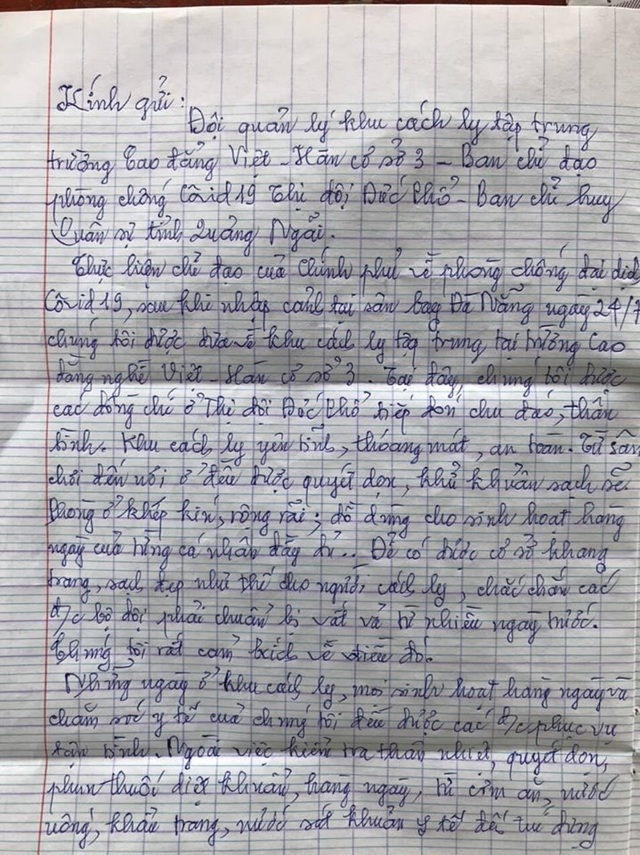 Kính gửi:
Đội quản lý khu cách ly tập trung
trường Cao đẳng Việt - Hàn cơ sở 3 - Ban chỉ đạo
phòng chống Côvid 19 Thị đội Đức Phổ - Ban chỉ huy
Quân sự tỉnh Quảng Ngãi.
Thực hiện chỉ đạo của Chính phủ về phòng chống đại dịch
Côvid 19, sau khi nhập cảnh tại sân bay Đà Nẵng ngày 24/7
chúng tôi được đưa về khu cách ly tập trung tại trường Cao
đẳng nghề Việt - Hàn cơ sở 3. Tại đây, chúng tôi được
các đồng chí ở Thị đội Đức Phổ tiếp đón chu đáo, thân
tình. Khu cách ly yên tĩnh, thoáng mát, an toàn. Từ sân
chơi đến nơi ở đều được quyét dọn, khử khuẩn sạch sẽ.
Phòng ở khép kín, rộng rãi; đồ dùng cho sinh hoạt hàng
ngày của từng cá nhân đầy đủ.. Để có được cơ sở khang
trang, sạch đẹp như thế cho người cách ly, chắc chắn các
đ/c bộ đội phải chuẩn bị vất vả từ nhiều ngày trước.
Chúng tôi rất cảm kích về điều đó.
Những ngày ở khu cách ly, mọi sinh hoạt hàng ngày và
chăm sóc y tế của chúng tôi đều được các đ/c phục vụ
tận tình. Ngoài việc kiểm tra thân nhiệt, quyét dọn,
phun thuốc diệt khuẩn, hàng ngày, từ cơm ăn, nước
uống, khẩu trang, nước sát khuẩn y tế đến túi đựng